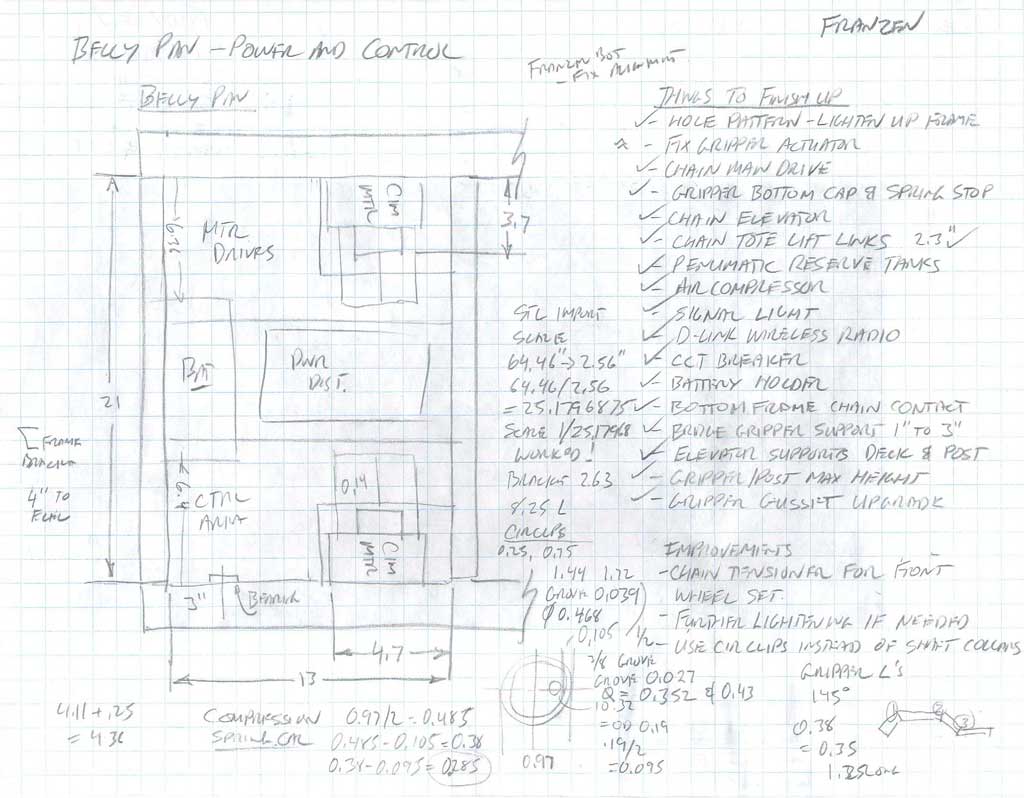 FRANZEN
BELLY PAN - POWER AND CONTROL
FRANZEN BOT
- FIX ALIGNMENT
BELLY PAN
THINGS TO FINISH UP
✓- HOLE PATTERN - LIGHTEN UP FRAME
- FIX GRIPPER ACTUATOR
✓- CHAIN MAIN DRIVE
✓- GRIPPER BOTTOM CAP & SPRING STOP
✓- CHAIN ELEVATOR
✓- CHAIN TOTE LIFT LINKS 2.3" ✓
✓- PENUMATIC RESERVE TANKS
✓- AIR COMPRESSOR
✓- SIGNAL LIGHT
✓- D-LINK WIRELESS RADIO
✓- CCT BREAKER
✓- BATTERY HOLDER
✓- BOTTOM FRAME CHAIN CONTACT
✓- BRIDGE GRIPPER SUPPORT 1" TO 3"
✓- ELEVATOR SUPPORTS DECK & POST
✓- GRIPPER/POST MAX HEIGHT
✓- GRIPPER GUSSET UPGRADE
IMPROVEMENTS
- CHAIN TENSIONER FOR FRONT
WHEEL SET.
- FURTHER LIGHTENING IF NEEDED
- USE CIRCLIPS INSTEAD OF SHAFT COLLARS
GRIPPER L'S
145°
0.38
= 0.35
1 2 3
STL IMPORT
SCALE
64.46" → 2.56"
64.46/2.56
= 25.1796875
SCALE 1/25.17968
WORKED!
BRACKET 2.63
8.25 L
CIRCLIPS
0.25, 0.75
1.44 1.72
GROVE 0.039
Ø 0.468
0.105 1/2
3/8 GROVE
GROVE 0.027
= 0.352 & 0.43
10.32
= OD 0.19
.19/2
= 0.095
0.97
CIM
MTR
3.7
6.36
MTR
DRIVES
BAT
PWR
DIST.
21
FRAME
BRACKET
4" TO
6.4
CTRL
0.14
CIM
MTR
3"
BEARING
4.7
13
4.11 + .25
= 4.36
COMPRESSION 0.97/2 = 0.485
SPRING 0.485 - 0.105 = 0.38
0.38 - 0.095 = 0.285